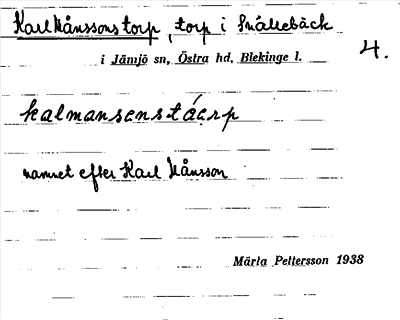 Karl Månssons torp, torp i Smällebäck
i Jämjö sn, Östra hd, Blekinge l.
4.
kalmansenstáærp
namnet efter Karl Månsson
Märta Pettersson 1938